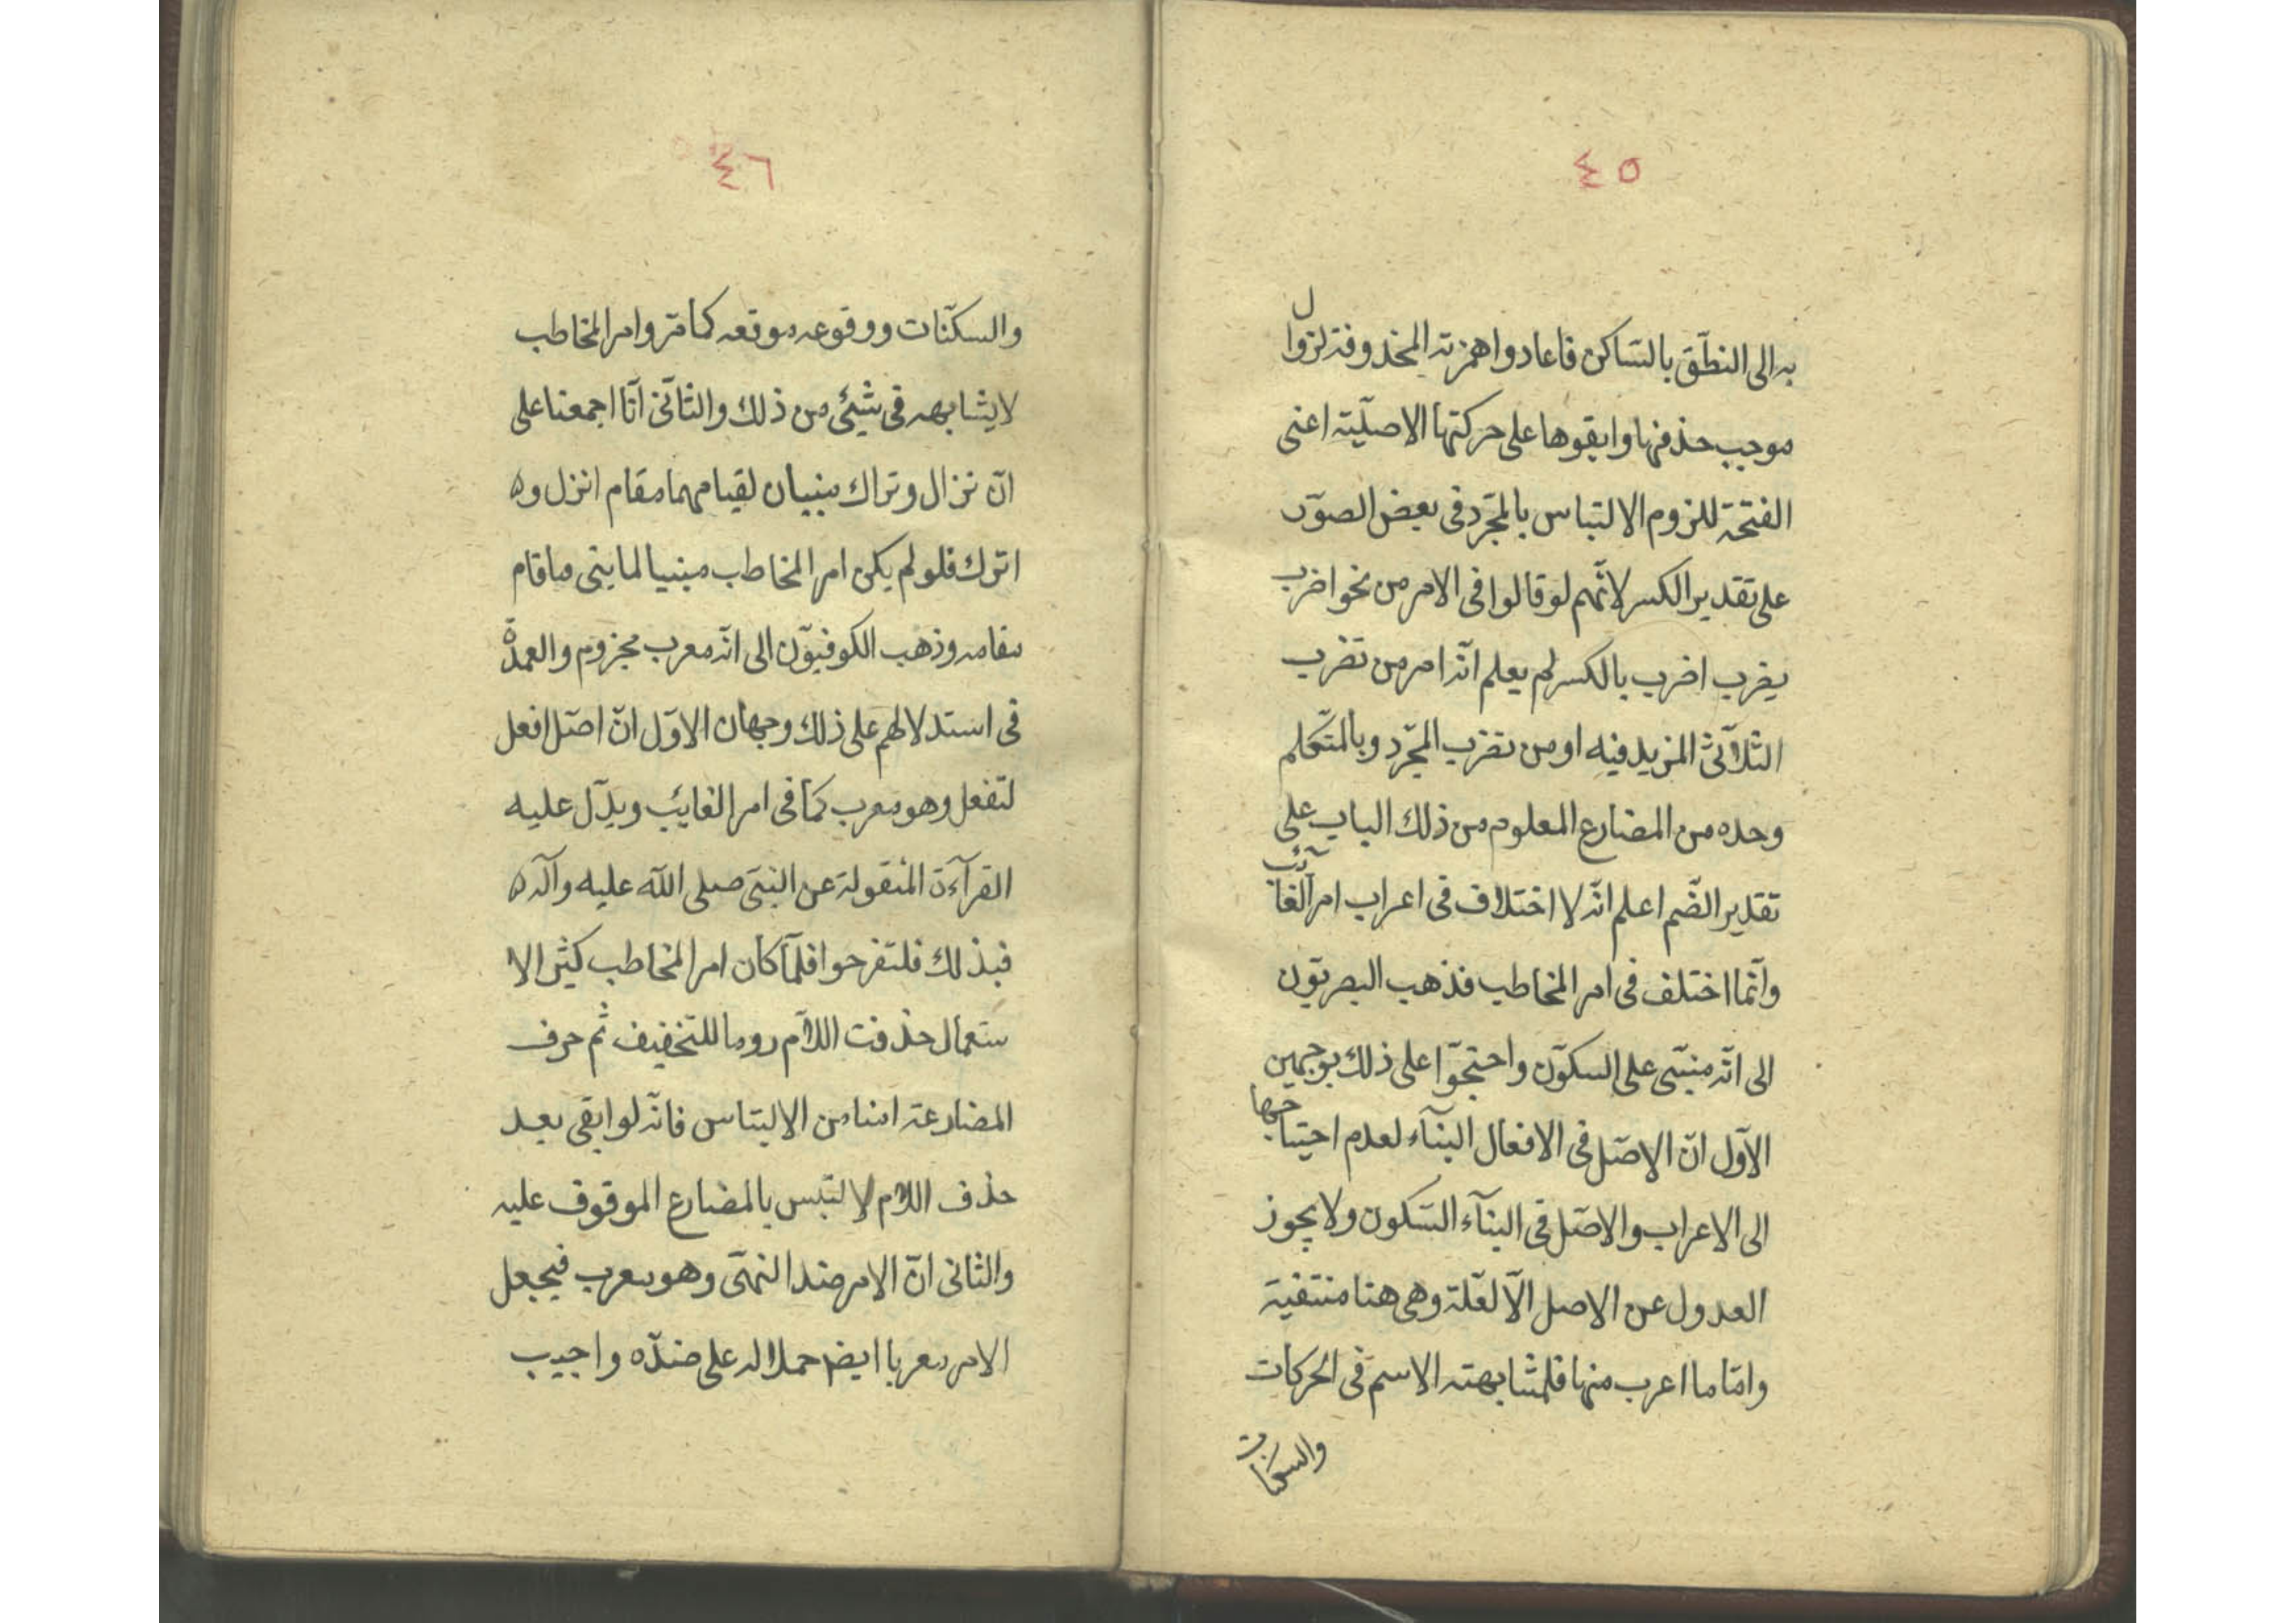 ٤٥
به الى النطّق بالسّاكن فاعادوا همزته المحذوفة لزوال
موجب حذفها وابقوها على حركتها الاصليّة اعنى
الفتحة للزوم الالتباس بالمجّرد فى بعض الصوّر
على تقدير الكسر لانّهم لو قالوا فى الامر من نحو اضرب
يضرب اضرب بالكسر لم يعلم انّه امر من تضرب
الثلاثّى المزيد فيه او من تضرب المجّرد وبالمتّكلم
وحده من المضارع المعلوم من ذلك الباب على
تقدير الضّم اعلم انّه لا اختلاف فى اعراب امر الغائب
وانّما اختلف فى امر المخاطب فذهب البصريّون
الى انّه مبنىّ على السكوّن واحتجوّا على ذلك بوجهين
الاوّل انّ الاصّل فى الافعال البنآء لعدم احتياجها
الى الاعراب والاصّل فى البنآء السّكون ولا يجوز
العدول عن الاصل الّا لعّلة وهى هنا منتفية
وامّا ما اعرب منها فلمشابهته الاسم فى الحركات
والسكنات
٤٦
والسكّنات ووقوعه موقعه كما مّر وامر المخاطب
لا يشابهه فى شيئ من ذلك والثانّى انّا اجمعنا على
انّ نزال وتراك مبنيان لقيامهما مقام انزل و
اترك فلو لم يكن امر المخاطب مبنيا لما بنى ما قام
مقامه وذهب الكوفيوّن الى انّه معرب مجزوم والعمدّة
فى استدلالهم على ذلك وجهان الاوّل انّ اصّل افعل
لتفعل وهو معرب كما فى امر الغايب ويدّل عليه
القرآءة المنقولة عن النبىّ صلى اللّه عليه وآله
فبذلك فلتفرحوا فلمّا كان امر المخاطب كثير الا
ستعمال حذفت اللّام روما للتّخفيف ثم حرف
المضارعة امنا من الالتباس فانّه لو ابقى بعد
حذف اللّام لالتبّس بالمضارع الموقوف عليه
والثانى انّ الامر ضد النهىّ وهو معرب فيجعل
الامر معربا ايضا حملا له على ضدّه واجيب